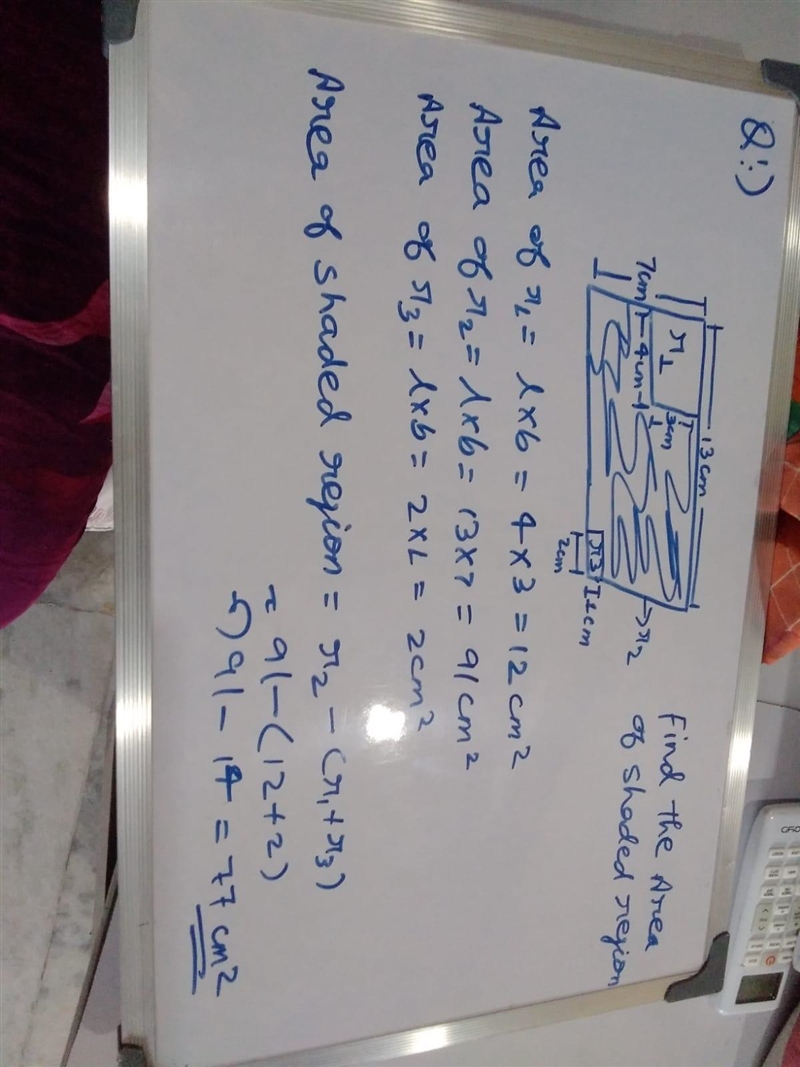 Q:)
Find the Area
of shaded region
13 cm
r1
3cm
7cm
4cm
r2
r3
1cm
2cm
Area of r1 = l x b = 4 x 3 = 12 cm²
Area of r2 = l x b = 13 x 7 = 91 cm²
Area of r3 = l x b = 2 x 1 = 2 cm²
Area of shaded region = r2 - (r1 + r3)
= 91 - (12 + 2)
91 - 14 = 77 cm²